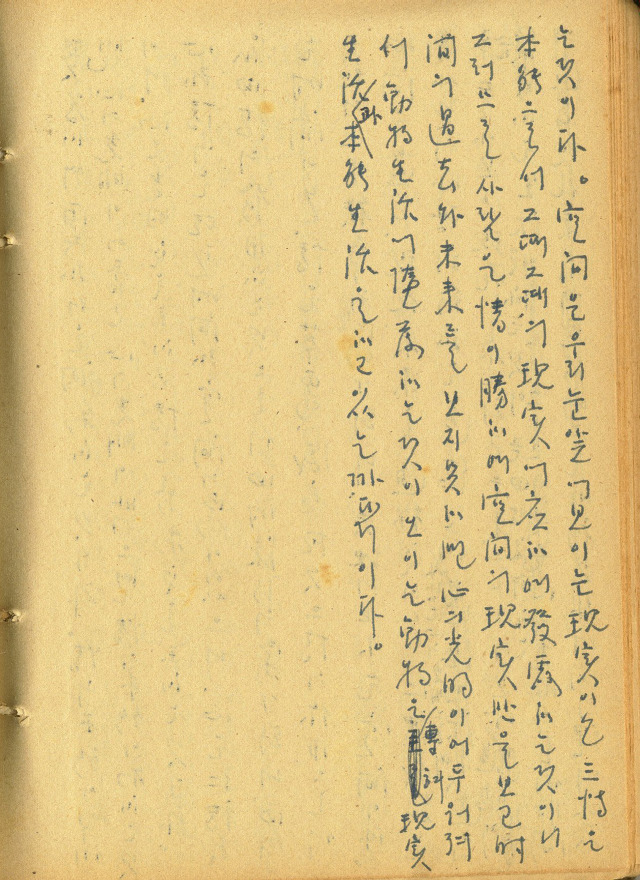 는것이다。空間은우리눈앞에보이는現實이요三情은
本能으로서그때그때의現實에応하여發露하는것이니
그러므로사람은情이勝하매空間의現實만을보고時
間의過去와未來를보지못하면心의光明이어두워져
서動物生活에墮落하는것이보이는動物은轉혀現實
生活과本能生活을하고있는까닭이다。